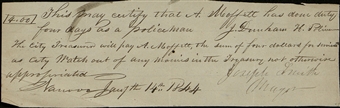 $4.00 This may certify that A. Moffett has done duty
four days as a policeman J. Dunham H. P.
The City Treasurer will pay A. Moffett, the sum of four dollars for services
as City Watch out of any monies in the Treasury not otherwise
appropriated Joseph Smith
Nauvoo Jany 14th 1844 Mayor